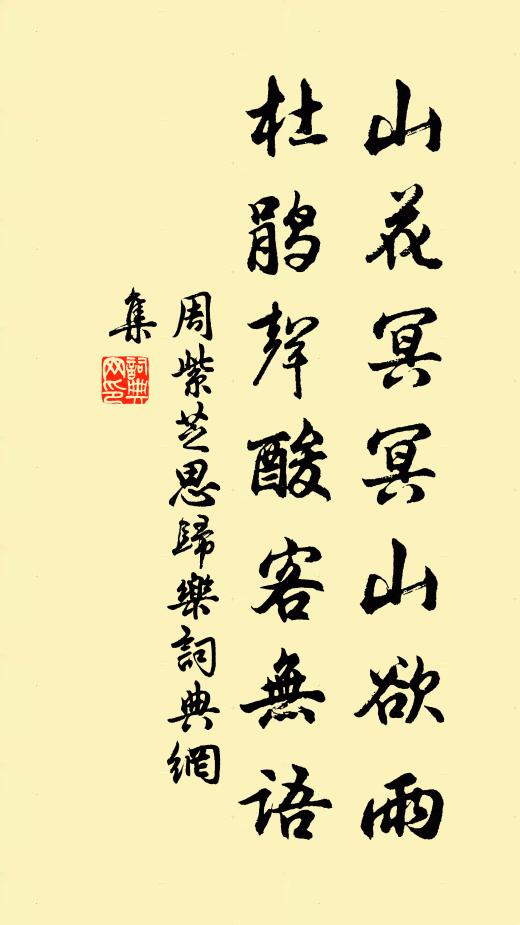 山花冥冥山欲雨
杜鹃聲酸客無語
周紫芝思歸樂詞典網
集
詞典
网印